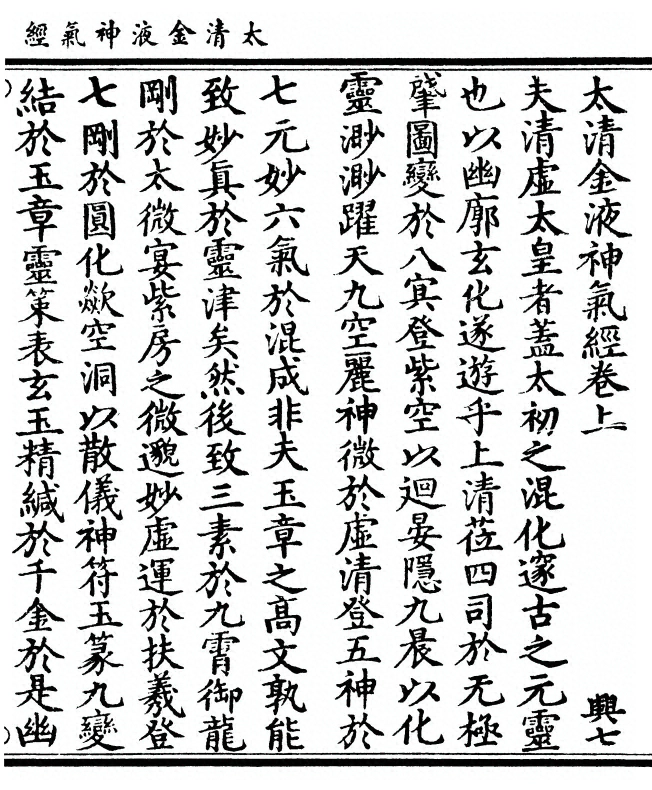 太清金液神氣經
太清金液神氣經卷上 興七
夫清虛太皇者蓋太初之混化邃古之元靈
也以幽廓玄化遂遊乎上清莅四司於无極
肇圖變於八冥登紫空以迴晏隱九晨以化
靈渺渺躍天九空麗神微於虛清登五神於
七元妙六氣於混成非夫玉章之高文孰能
致妙眞於靈津矣然後致三素於九霄御龍
剛於太微宴紫房之微邈妙虛運於扶羲登
七剛於圓化歘空洞以散儀神符玉篆九變
結於玉章靈策表玄玉精緘於千金於是幽